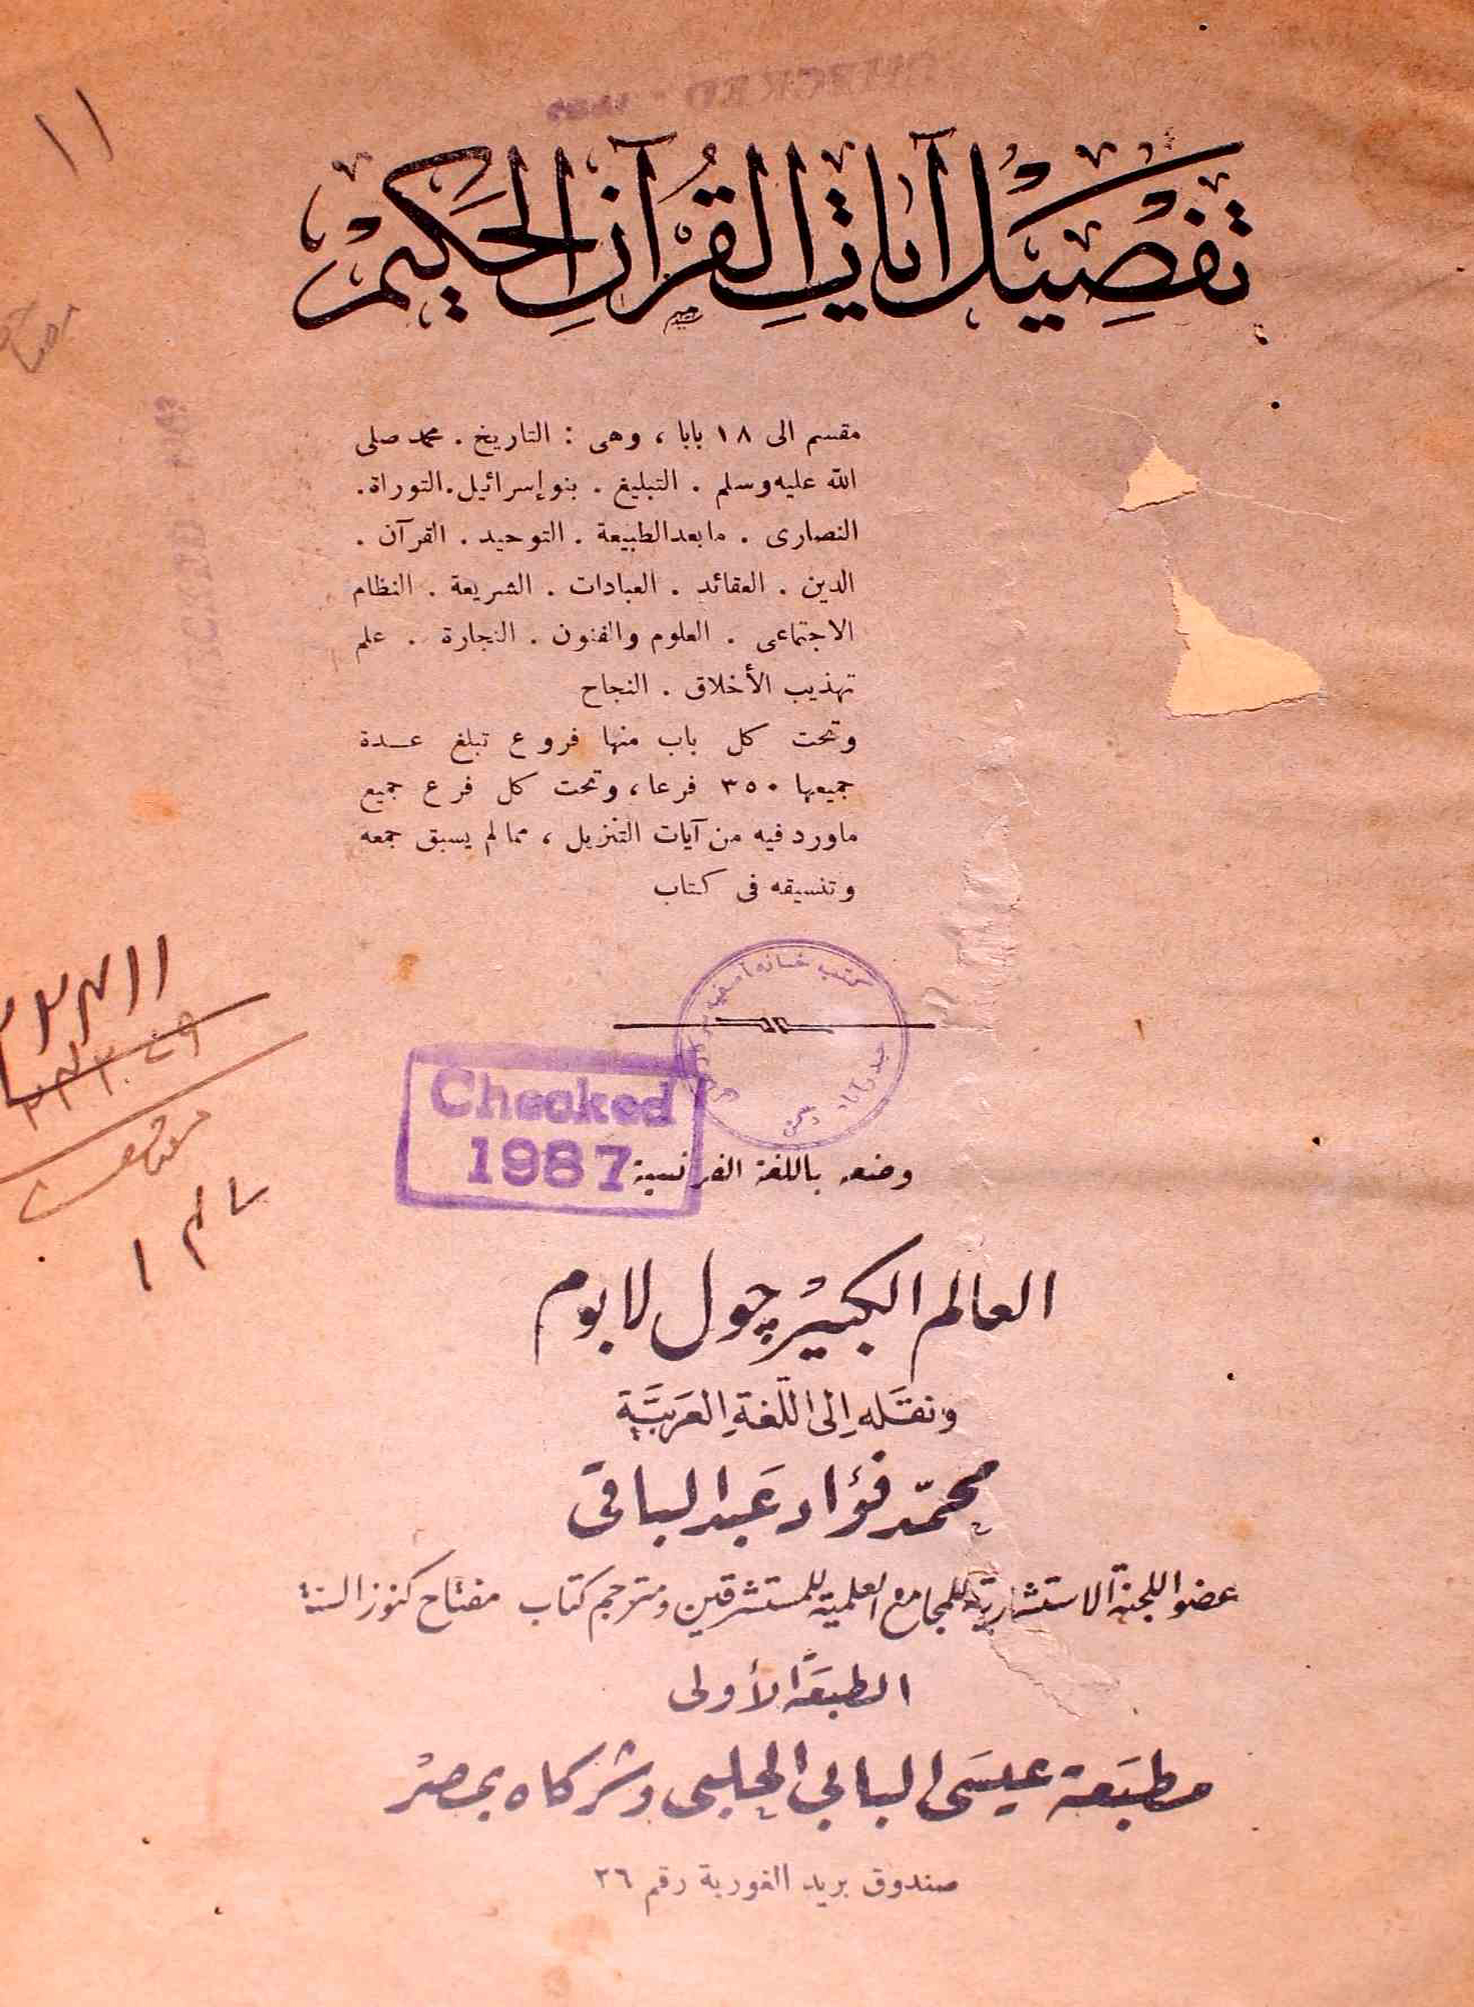 ١١
تفصيل آيات القرآن الحكيم
مقسم الى ١٨ بابا ، وهى : التاريخ . محمد صلى
الله عليه وسلم . التبليغ . بنو إسرائيل . التوراة .
النصارى . ما بعد الطبيعة . التوحيد . القرآن .
الدين . العقائد . العبادات . الشريعة . النظام
الاجتماعى . العلوم والفنون . التجارة . علم
تهذيب الأخلاق . النجاح
وتحت كل باب منها فروع تبلغ عدة
جميعها ٣٥٠ فرعا ، وتحت كل فرع جميع
ماورد فيه من آيات التنزيل ، مما لم يسبق جمعه
وتنسيقه فى كتاب
كتب خانه آصفيه سركار
حيدرآباد دكن
Checked
1987
وضعه باللغة الفرنسية
العالم الكبير چول لابوم
ونقله إلى اللغة العربية
محمد فؤاد عبد الباقى
عضو اللجنة الاستشارية للمجامع العلمية للمستشرقين ومترجم كتاب مفتاح كنوز السنة
الطبعة الأولى
مطبعة عيسى البابى الحلبى وشركاه بمصر
صندوق بريد الغورية رقم ٢٦